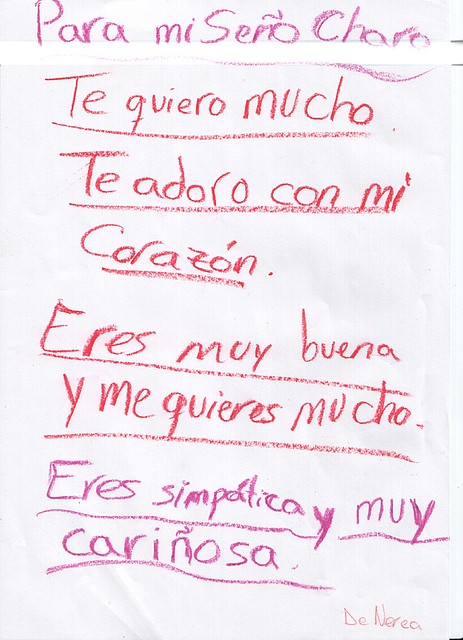 Para mi Seño Charo
Te quiero mucho.
Te adoro con mi
Corazón.
Eres muy buena
y me quieres mucho.
Eres simpática y muy
cariñosa.
De Nerea